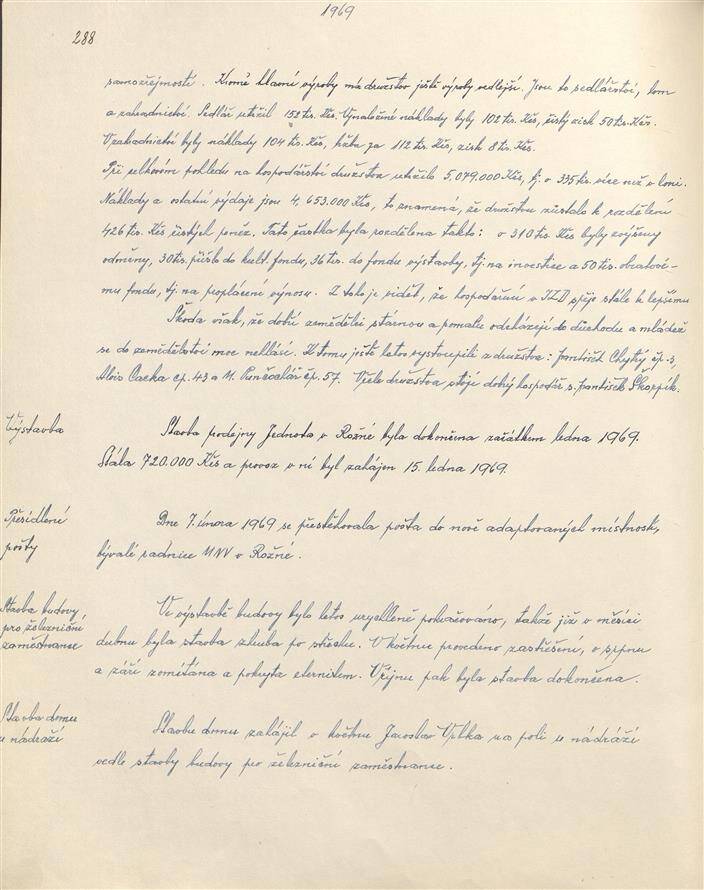 1969
288
samozřejmostí. Kromě hlavní výroby má družstvo ještě výroby vedlejší. Jsou to sedlářství, lom
a zahradnictví. Sedlář utržil 152 tis. Kčs. Vynaložené náklady byly 102 tis. Kčs, čistý zisk 50 tis. Kčs.
V zahradnictví byly náklady 104 tis. Kčs, tržba za 112 tis. Kčs, zisk 8 tis. Kčs.
Při celkovém pohledu na hospodářství družstva utržilo 5,079.000 Kčs, tj. o 335 tis. více než v loni.
Náklady a ostatní výdaje jsou 4,653.000 Kčs, to znamená, že družstvu zůstalo k rozdělení
426 tis. Kčs čistých peněz. Tato částka byla rozdělena takto: o 310 tis. Kčs byly zvýšeny
odměny, 30 tis. přišlo do kult. fondu, 36 tis. do fondu výstavby, tj. na investice a 50 tis. obratové-
mu fondu, tj. na proplácení výnosu. Z toho je vidět, že hospodaření v JZD spěje stále k lepšímu
Škoda však, že dobří zemědělci stárnou a pomalu odcházejí do důchodu a mládež
se do zemědělství moc nehlásí. K tomu ještě letos vystoupili z družstva: František Chytký čp. 3,
Alois Cacka čp. 43 a M. Punčochář čp. 57. V čele družstva stojí dobrý hospodář s. František Skoupík.
Výstavba
Stavba prodejny Jednota v Rožné byla dokončena začátkem ledna 1969.
Stála 720.000 Kčs a provoz v ní byl zahájen 15. ledna 1969.
Přesídlení
pošty
Dne 7. února 1969 se přestěhovala pošta do nově adaptovaných místností,
bývalé radnice MNV v Rožné.
Stavba budovy
pro železniční
zaměstnance
Ve výstavbě budovy bylo letos urychleně pokračováno, takže již v měsíci
dubnu byla stavba zhruba po střechu. V květnu provedeno zastřešení, v srpnu
a září zomítána a pokryta eternitem. V říjnu pak byla stavba dokončena.
Stavba domu
u nádraží
Stavbu domu zahájil v květnu Jaroslav Vrtka na poli u nádraží
vedle stavby budovy pro železniční zaměstnance.